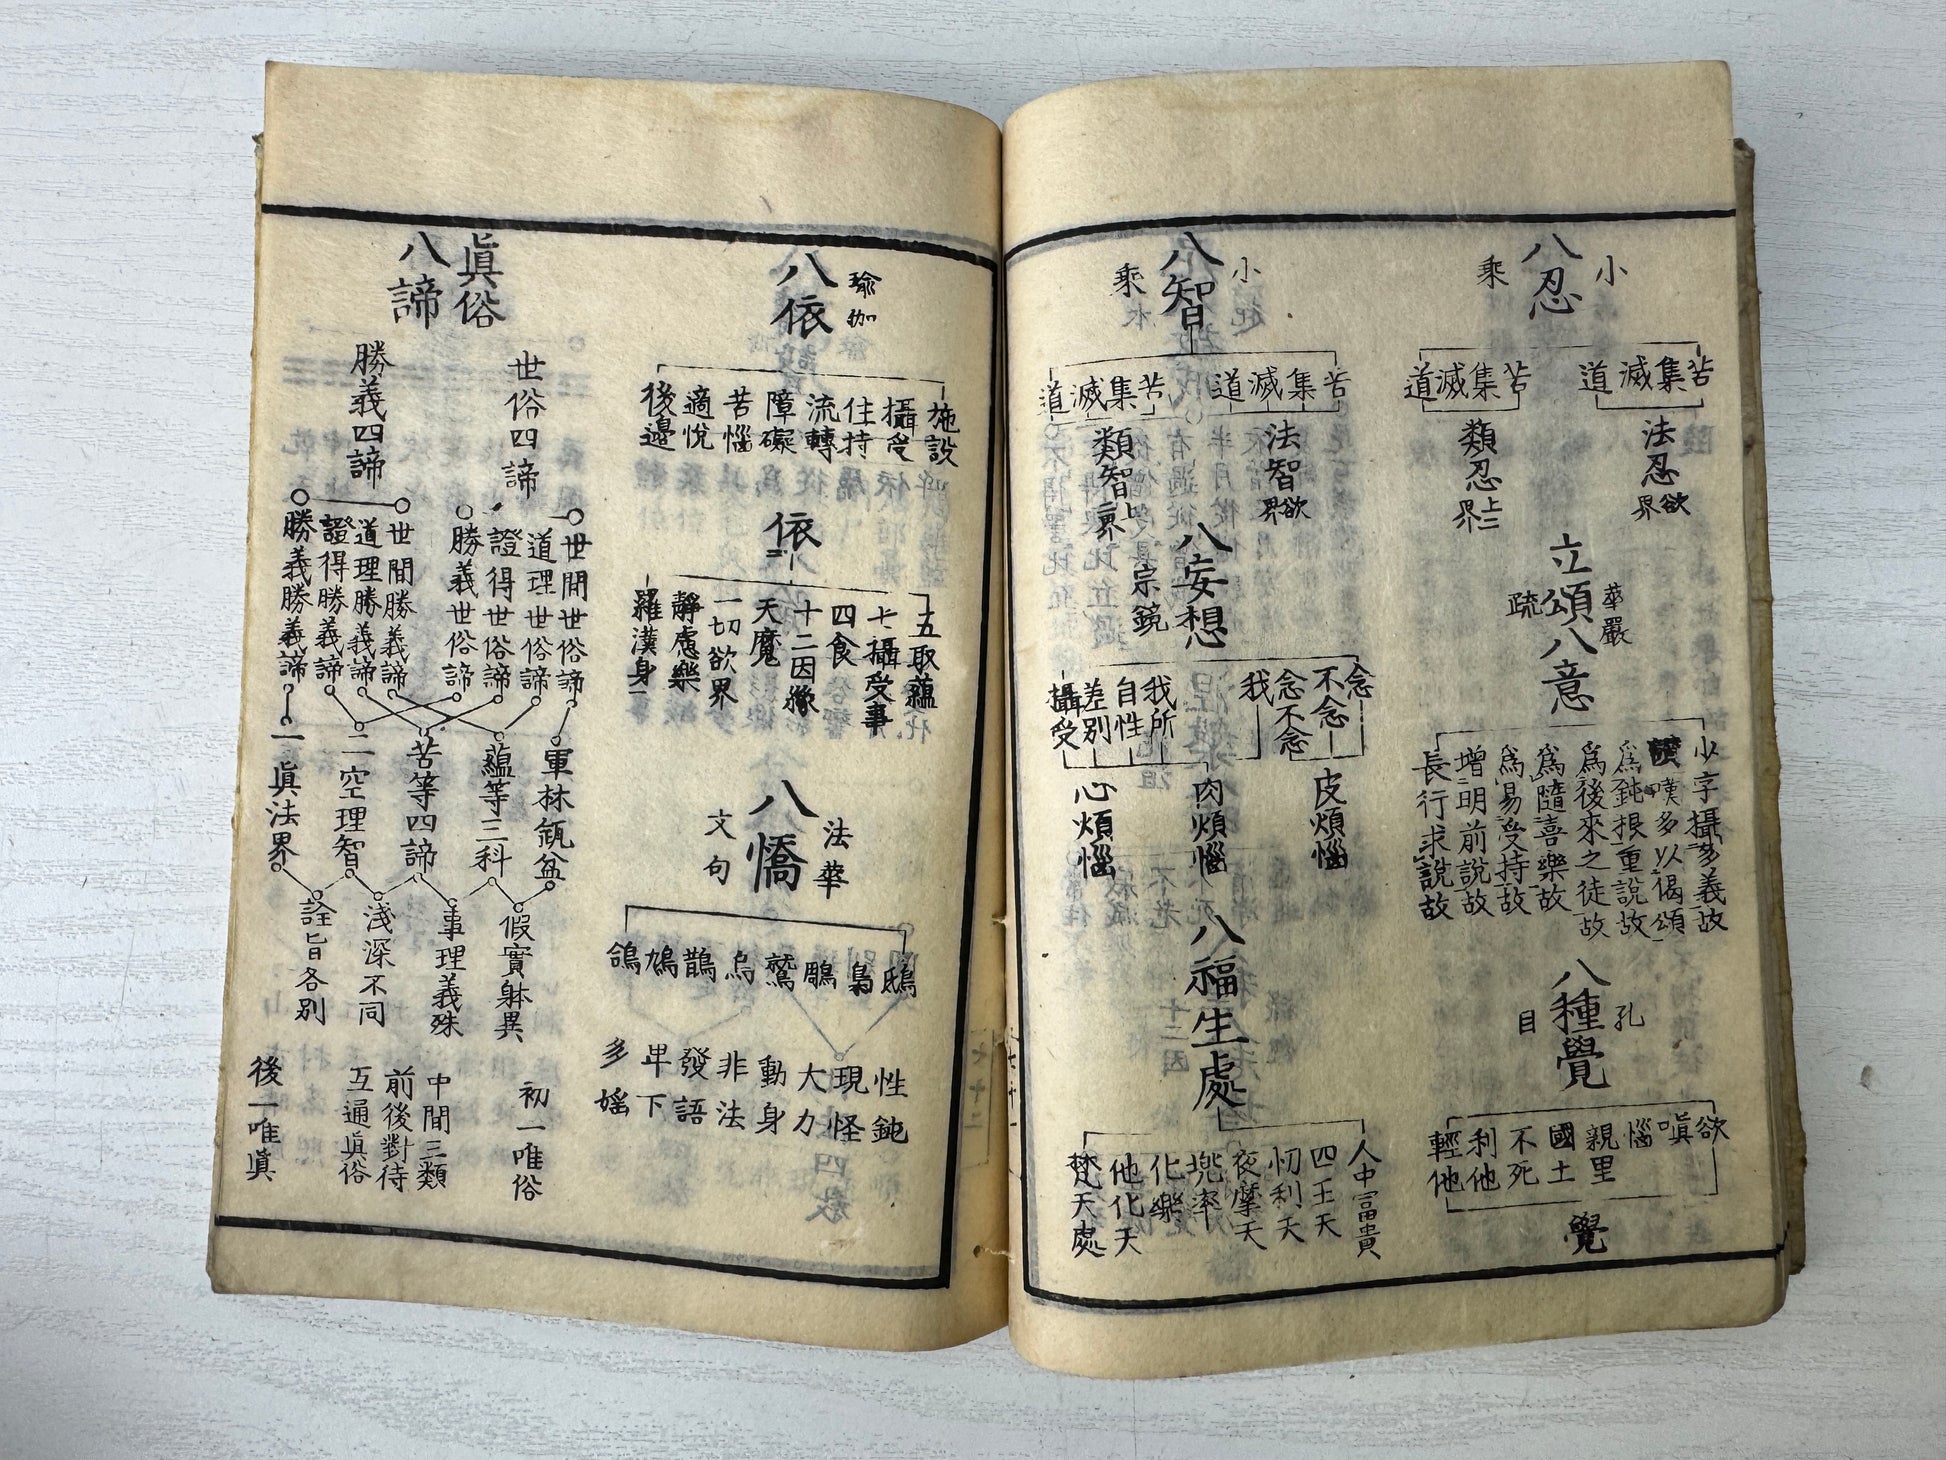 八忍
小乘
苦集滅道
法忍
欲界
苦集滅道
類忍
上二界
立頌八意
華嚴疏
少字攝多義故
讚嘆多以偈頌
爲鈍根重說故
爲後來之徒故
爲隨喜樂故
爲易受持故
增明前說故
長行求說故
八種覺
孔目
欲
嗔
惱
親里
國土
不死
利他
輕他
覺
八智
小乘
苦集滅道
法智
欲界
苦集滅道
類智
上界
八妄想
宗鏡
念
不念
念不念
我
我所
自性
差別
攝受
皮煩惱
肉煩惱
心煩惱
八福生處
人中冨貴
四王天
忉利天
夜摩天
兠率
化樂
他化天
梵天處
七十一
七十二
八依
瑜伽
施設
攝受
住持
流轉
障礙
苦惱
適悅
後邊
依
五取蘊
七攝受事
四食
十二因緣
天魔
一切欲界
靜慮樂
羅漢身
八憍
法華文句
鴟
梟
鵰
鷲
烏
鵲
鳩
鴿
性鈍
現怪
大力
動身
非法
發語
卑下
多婬
眞俗八諦
世俗四諦
世間世俗諦
道理世俗諦
證得世俗諦
勝義世俗諦
勝義四諦
世間勝義諦
道理勝義諦
證得勝義諦
勝義勝義諦
軍林瓶盆
蘊等三科
苦等四諦
二空理智
一眞法界
假實躰異
事理義殊
淺深不同
詮旨各別
初一唯俗
中間三類
前後對待
互通眞俗
後一唯眞